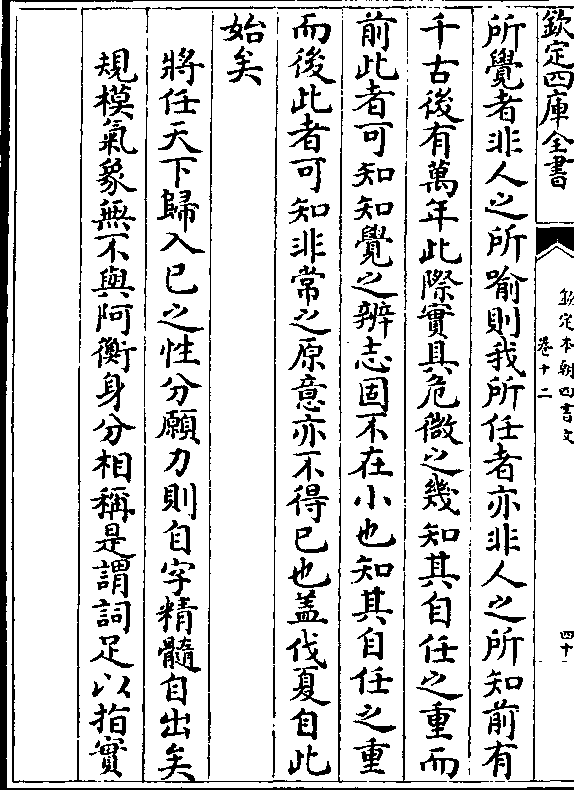 欽定四庫全書
欽定本朝四書文
卷十二
四十
所覺者非人之所喻則我所任者亦非人之所知前有
千古後有萬年此際實具危微之幾知其自任之重而
前此者可知知覺之辨志固不在小也知其自任之重
而後此者可知非常之原意亦不得已也蓋伐夏自此
始矣
將任天下歸入已之性分願力則自字精髓自出矣
規模氣象無不與阿衡身分相稱是謂詞足以指實